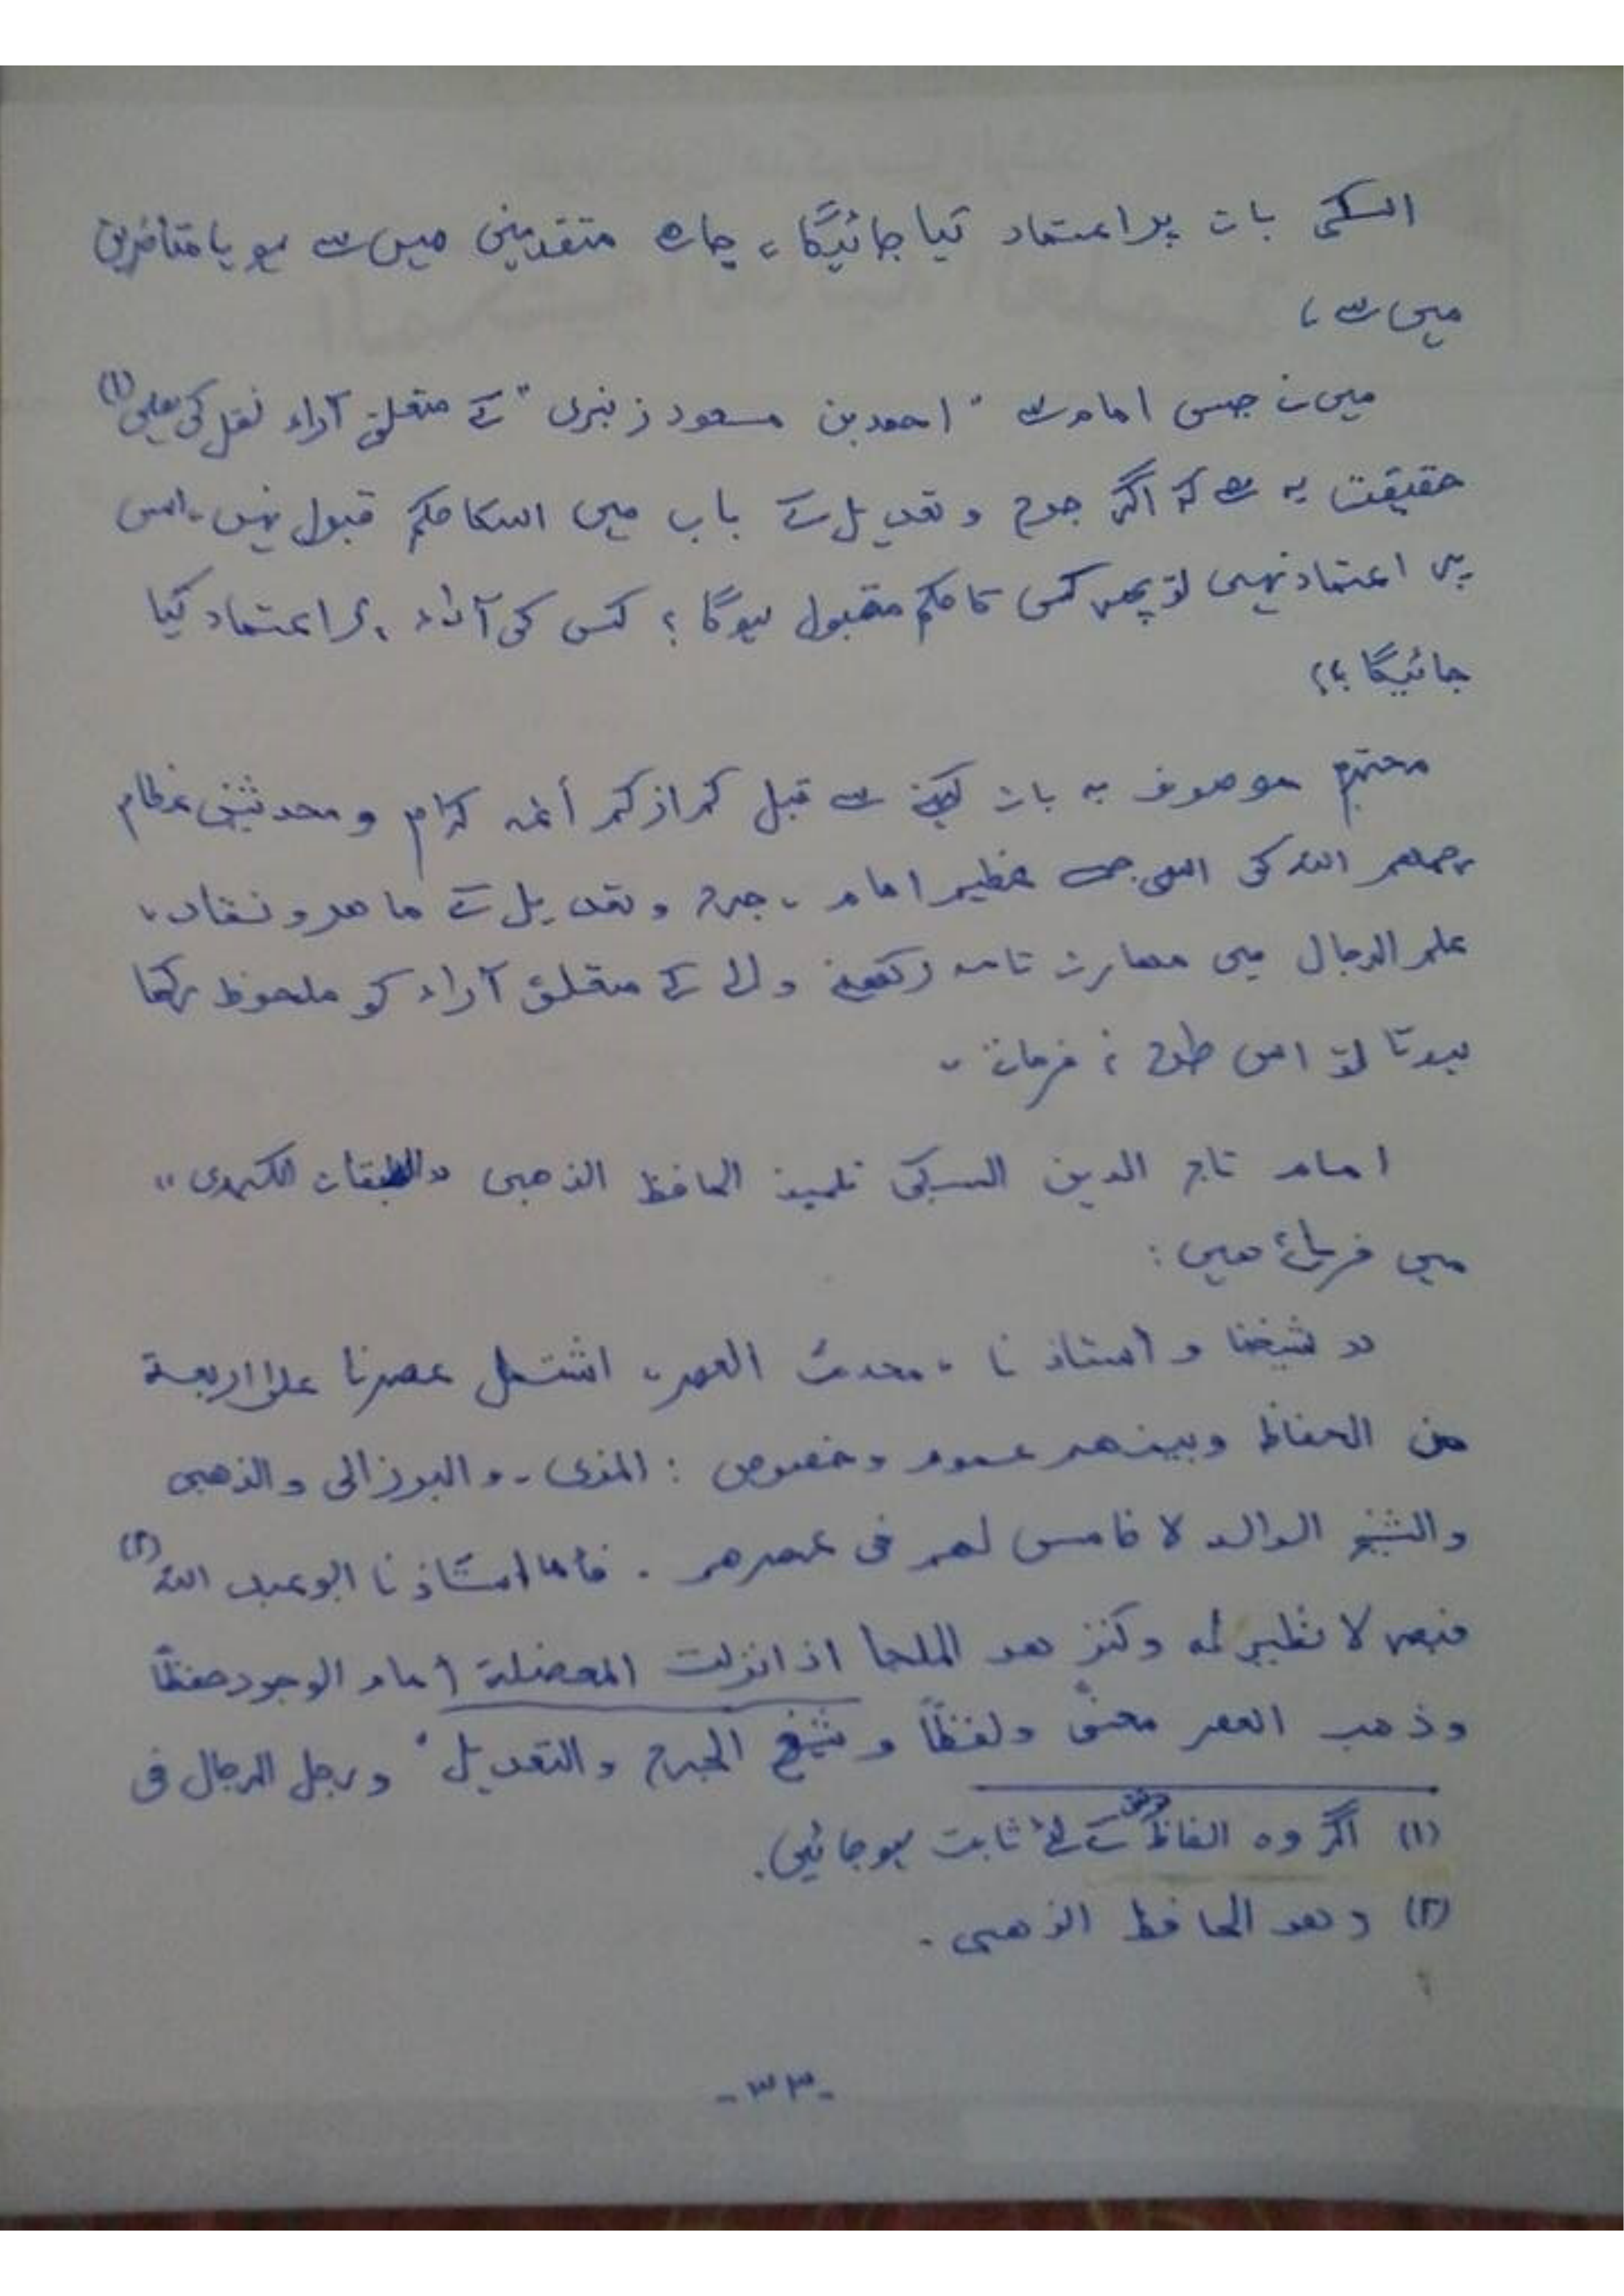 اسکی بات پر اعتماد کیا جائیگا، چاہے متقدمین میں سے ہو یا متأخرین
میں سے،
میں نے جس امام سے "احمد بن مسعود زنبری" کے متعلق آراء نقل کی ہیں (۱)
حقیقت یہ ہے کہ اگر جرح و تعدیل کے باب میں اسکا حکم قبول نہیں۔ اس
پر اعتماد نہیں تو پھر کس کا حکم مقبول ہوگا؟ کس کی آراء پر اعتماد کیا
جائیگا؟؟
محترم موصوف یہ بات کہنے سے قبل کم از کم أئمہ کرام و محدثین عظام
رحمھم اللہ کی اس جیسے عظیم امام، جرح و تعدیل کے ماھر و نقاد،
علم الرجال میں مھارت تامہ رکھنے والے کے متعلق آراء کو ملحوظ رکھا
ہوتا تو اس طرح نہ فرماتے۔
امام تاج الدین السبکی تلمیذ الحافظ الذھبی "الطبقات الکبری"
میں فرماتے ھیں:
"شیخنا و استاذنا، محدث العصر، اشتمل عصرنا علی اربعة
من الحفاظ وبینھم عموم وخصوص: المزی، والبرزالی والذھبی
والشیخ الوالد لا خامس لھم فی عصرھم. فأما استاذنا ابو عبد اللہ (۲)
فبصر لا نظیر لہ وکنز ھو الملجا اذا نزلت المعضلة امام الوجود حفظًا
وذھب العصر معنًی ولفظًا وشیخ الجرح والتعدیل" ورجل الرجال فی
(۱) اگر وہ الفاظ کے لئے ثابت ہوجائیں.
(۲) وھو الحافظ الذھبی.
-۳۳-